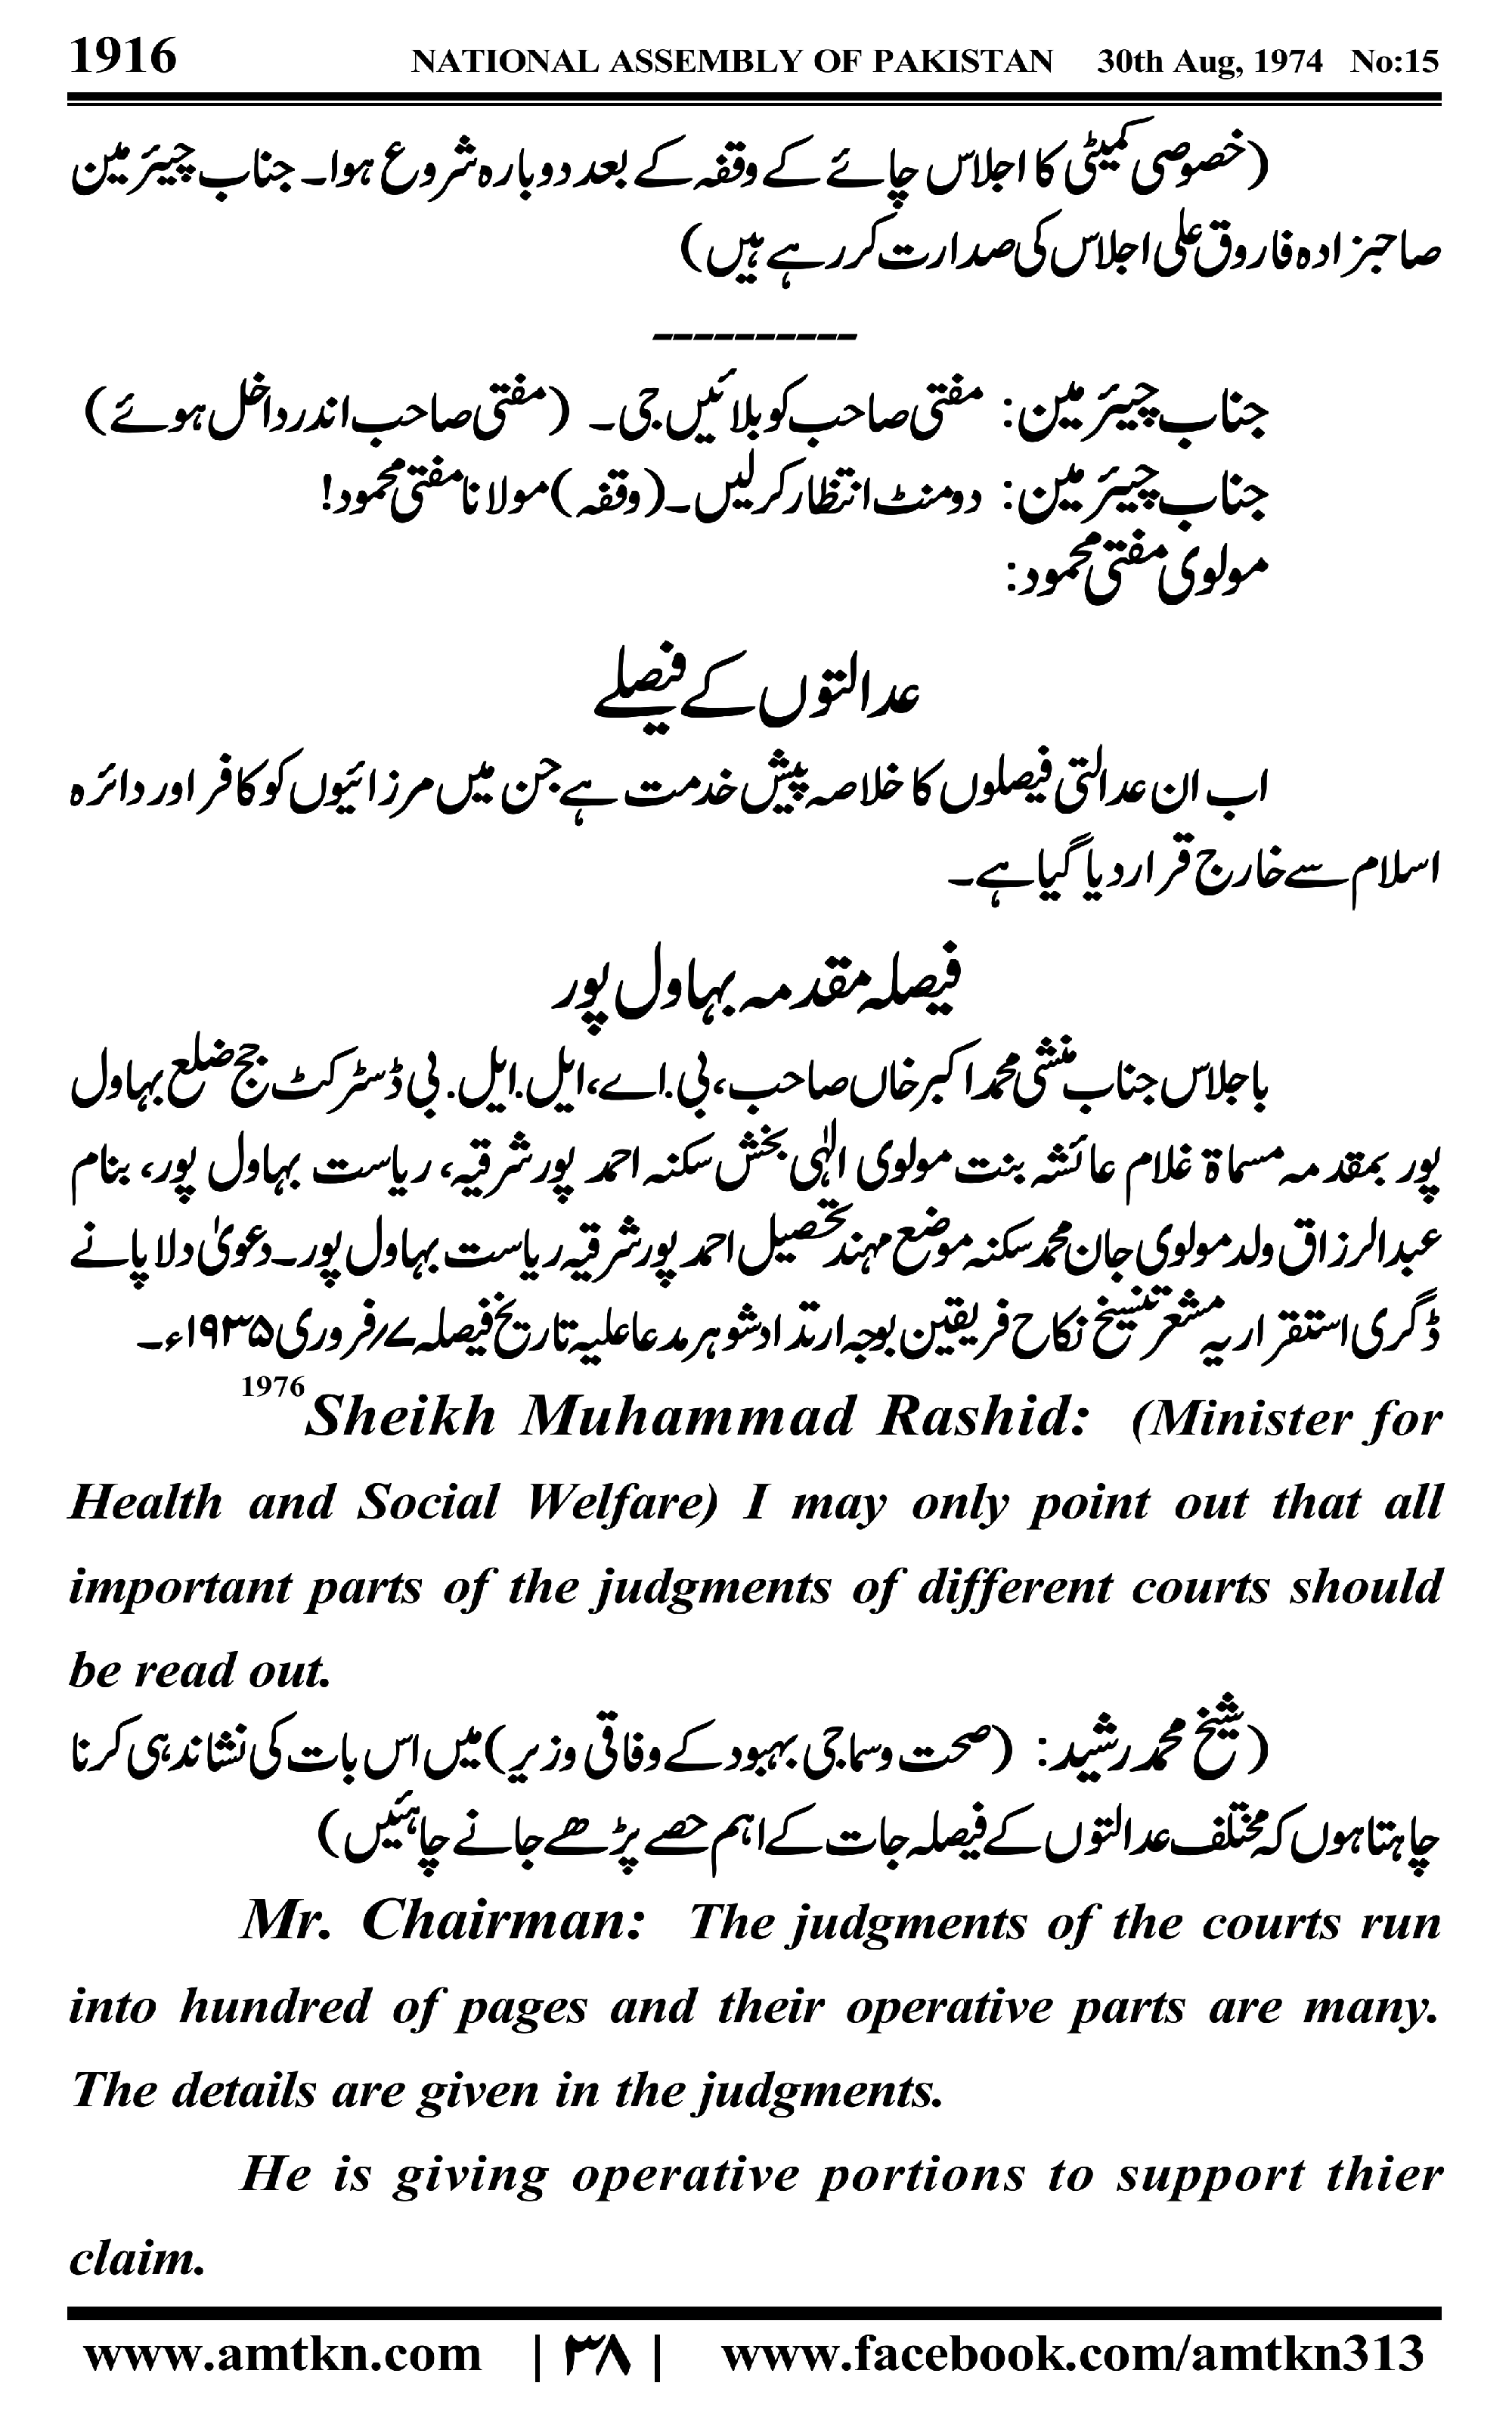 1916 NATIONAL ASSEMBLY OF PAKISTAN 30th Aug, 1974 No:15
(خصوصی کمیٹی کا اجلاس چائے کے وقفہ کے بعد دوبارہ شروع ہوا۔ جناب چیئرمین
صاحبزادہ فاروق علی اجلاس کی صدارت کررہے ہیں)
----------
جناب چیئرمین: مفتی صاحب کو بلائیں جی۔ (مفتی صاحب اندر داخل ہوئے)
جناب چیئرمین: دومنٹ انتظار کرلیں۔ (وقفہ) مولانا مفتی محمود!
مولوی مفتی محمود:
عدالتوں کے فیصلے
اب ان عدالتی فیصلوں کا خلاصہ پیش خدمت ہے جن میں مرزائیوں کو کافر اور دائرہ
اسلام سے خارج قرار دیا گیا ہے۔
فیصلہ مقدمہ بہاول پور
باجلاس جناب منشی محمد اکبر خاں صاحب، بی.اے، ایل.ایل.بی ڈسٹرکٹ جج ضلع بہاول
پور بمقدمہ مسماۃ غلام عائشہ بنت مولوی الٰہی بخش سکنہ احمد پور شرقیہ، ریاست بہاول پور، بنام
عبدالرزاق ولد مولوی جان محمد سکنہ موضع مہند تحصیل احمد پور شرقیہ ریاست بہاول پور۔ دعویٰ دلا پانے
ڈگری استقراریہ مشعر تنسیخ نکاح فریقین بوجہ ارتداد شوہر مدعاعلیہ تاریخ فیصلہ ۷؍فروری ۱۹۳۵ء۔
1976 Sheikh Muhammad Rashid: (Minister for
Health and Social Welfare) I may only point out that all
important parts of the judgments of different courts should
be read out.
(شیخ محمد رشید: (صحت وسماجی بہبود کے وفاقی وزیر) میں اس بات کی نشاندہی کرنا
چاہتا ہوں کہ مختلف عدالتوں کے فیصلہ جات کے اہم حصے پڑھے جانے چاہئیں)
Mr. Chairman: The judgments of the courts run
into hundred of pages and their operative parts are many.
The details are given in the judgments.
He is giving operative portions to support thier
claim.
www.amtkn.com | ۳۸ | www.facebook.com/amtkn313